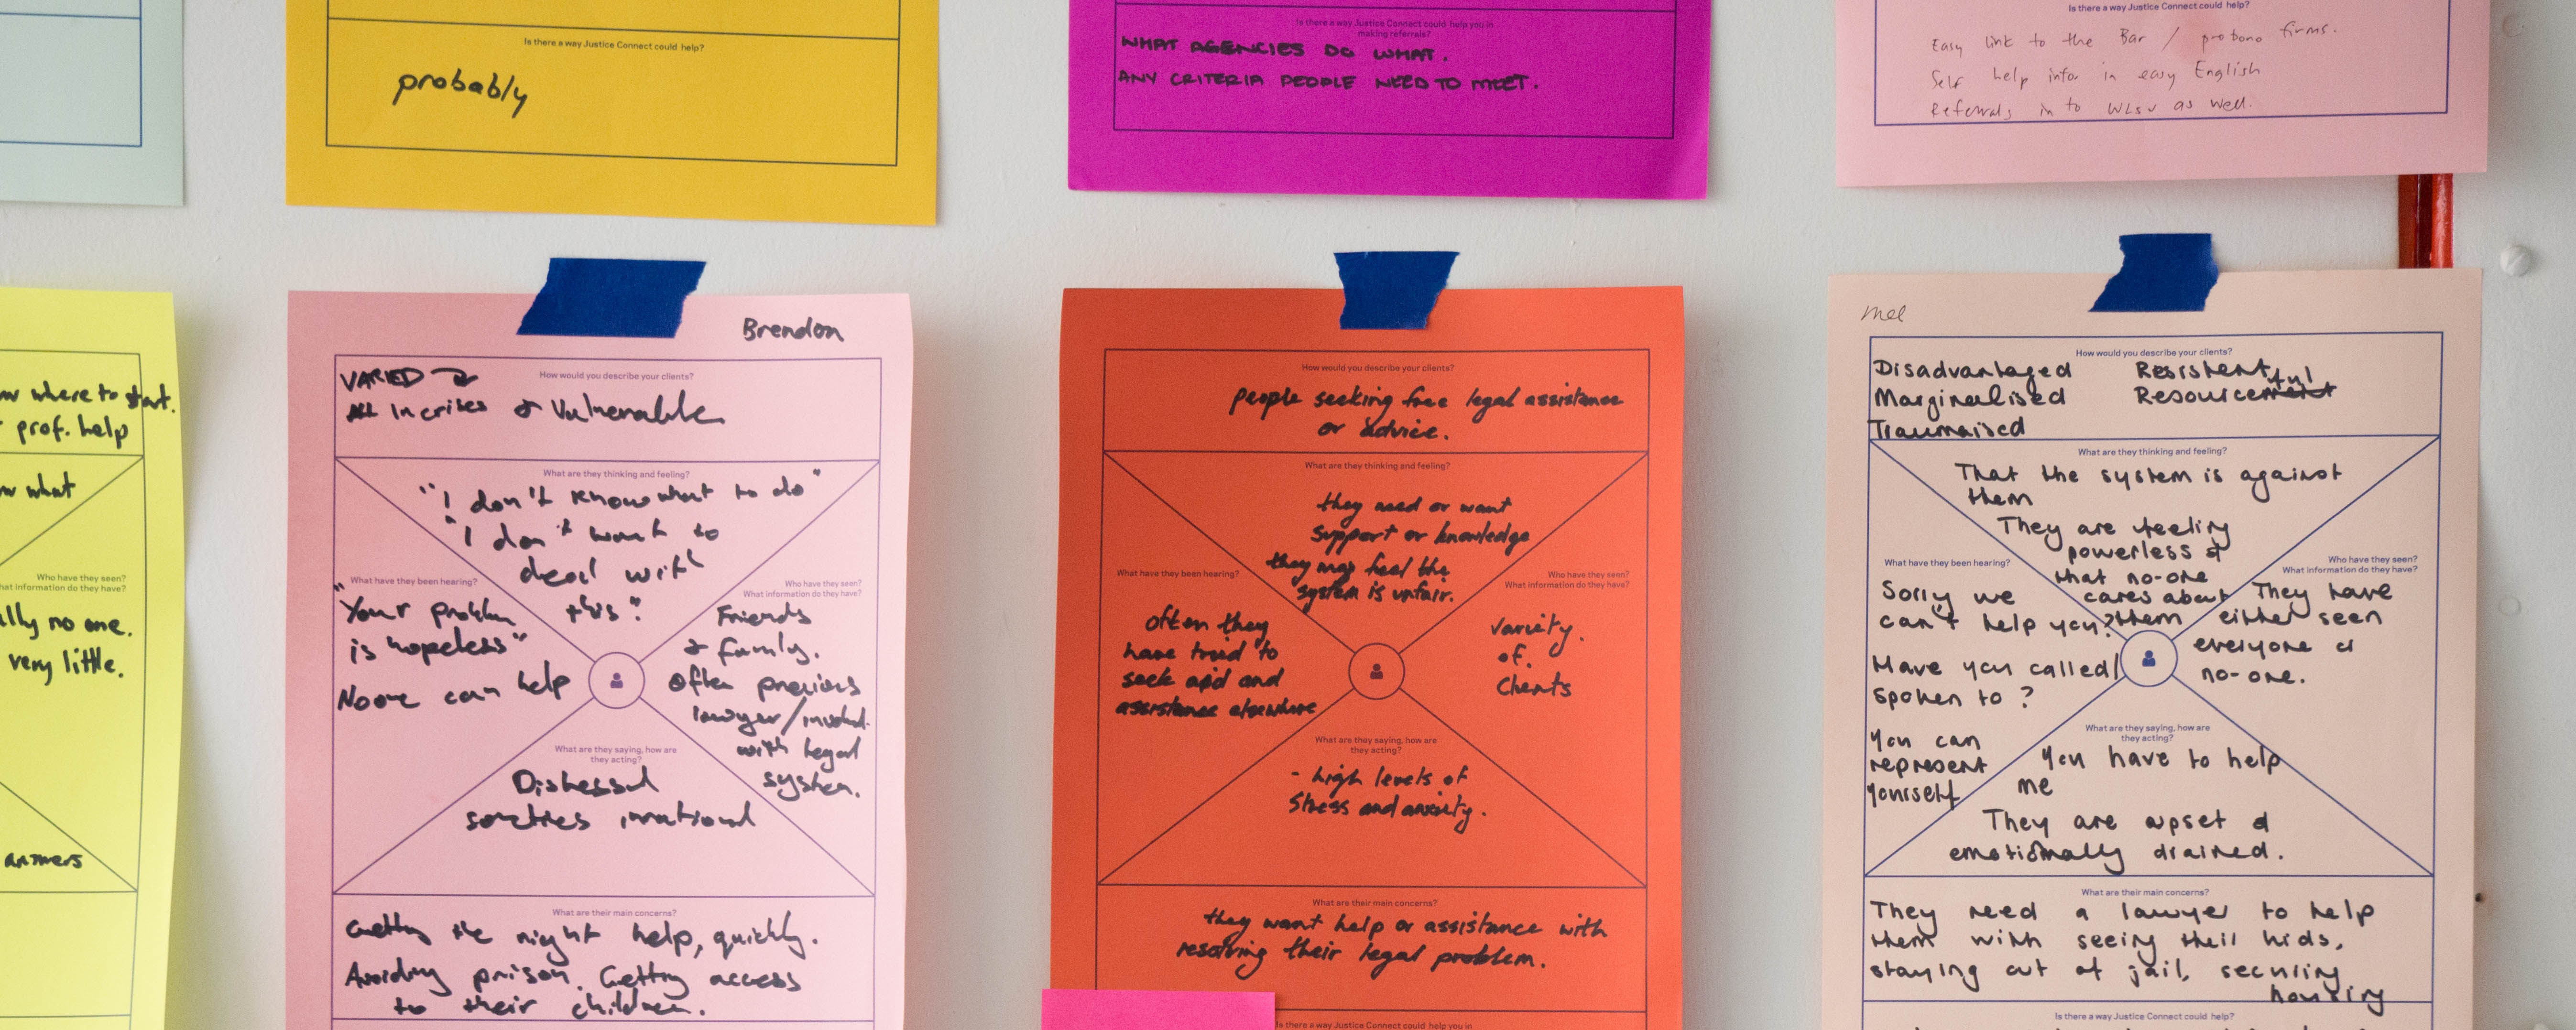 Is there a way Justice Connect could help?
probably
Is there a way Justice Connect could help you in
making referrals?
WHAT AGENCIES DO WHAT.
ANY CRITERIA PEOPLE NEED TO MEET.
Is there a way Justice Connect could help?
Easy link to the Bar / probono firms.
Self help info in easy English
Referrals in to WLSV as well.
where to start.
prof. help
what
Who have they seen?
What information do they have?
no one.
very little.
answers
Brendon
How would you describe your clients?
VARIED
All In crises & Vulnerable
What are they thinking and feeling?
"I don't know what to do"
"I don't want to
deal with
this."
What have they been hearing?
"Your problem
is hopeless"
No one can help
Who have they seen?
What information do they have?
Friends
& family.
Often previous
lawyer/involved
with legal
system.
What are they saying, how are
they acting?
Distressed
sometimes irrational
What are their main concerns?
Getting the right help, quickly.
Avoiding prison. Getting access
to their children.
How would you describe your clients?
people seeking free legal assistance
or advice.
What are they thinking and feeling?
they need or want
support or knowledge
they may feel the
system is unfair.
What have they been hearing?
often they
have tried to
seek aid and
assistance elsewhere
Who have they seen?
What information do they have?
variety
of
clients
What are they saying, how are
they acting?
- high levels of
stress and anxiety.
What are their main concerns?
they want help or assistance with
resolving their legal problem.
Is there a way Justice Connect could help you in
Mel
How would you describe your clients?
Disadvantaged Resistent
Marginalised Resourceful
Traumaised
What are they thinking and feeling?
That the system is against
them
They are feeling
powerless &
that no-one
cares about
them
What have they been hearing?
Sorry we
can't help you?
Have you called/
spoken to?
You can
represent
yourself
Who have they seen?
What information do they have?
They have
either seen
everyone or
no-one.
What are they saying, how are
they acting?
You have to help
me
They are upset &
emotionally drained.
What are their main concerns?
They need a lawyer to help
them with seeing their kids,
staying out of jail, securing
housing
Is there a way Justice Connect could help?